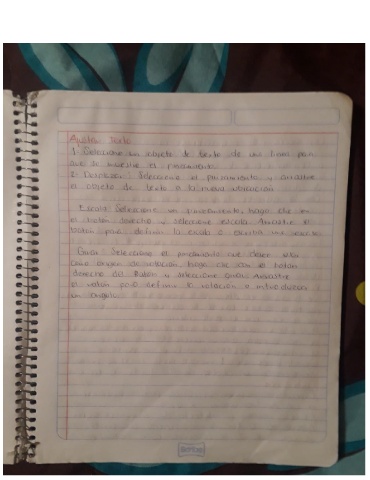 Ajustar texto
1. Seleccione un objeto de texto de una linea para
que se muestre el pinzamiento
2. Desplazar: Seleccione el pinzamiento y arrastre
el objeto de texto a la nueva ubicación
Escala: Seleccione un pinzamiento, haga clic en
el botón derecho y seleccione escala. Arrastre el
ratón para definir la escala o escriba un
Girar: Seleccione el pinzamiento que desee
como origen de rotación, haga clic con el botón
derecho del Ratón y seleccione girar. Arrastre
el ratón para definir la rotación o introduzca
un angulo